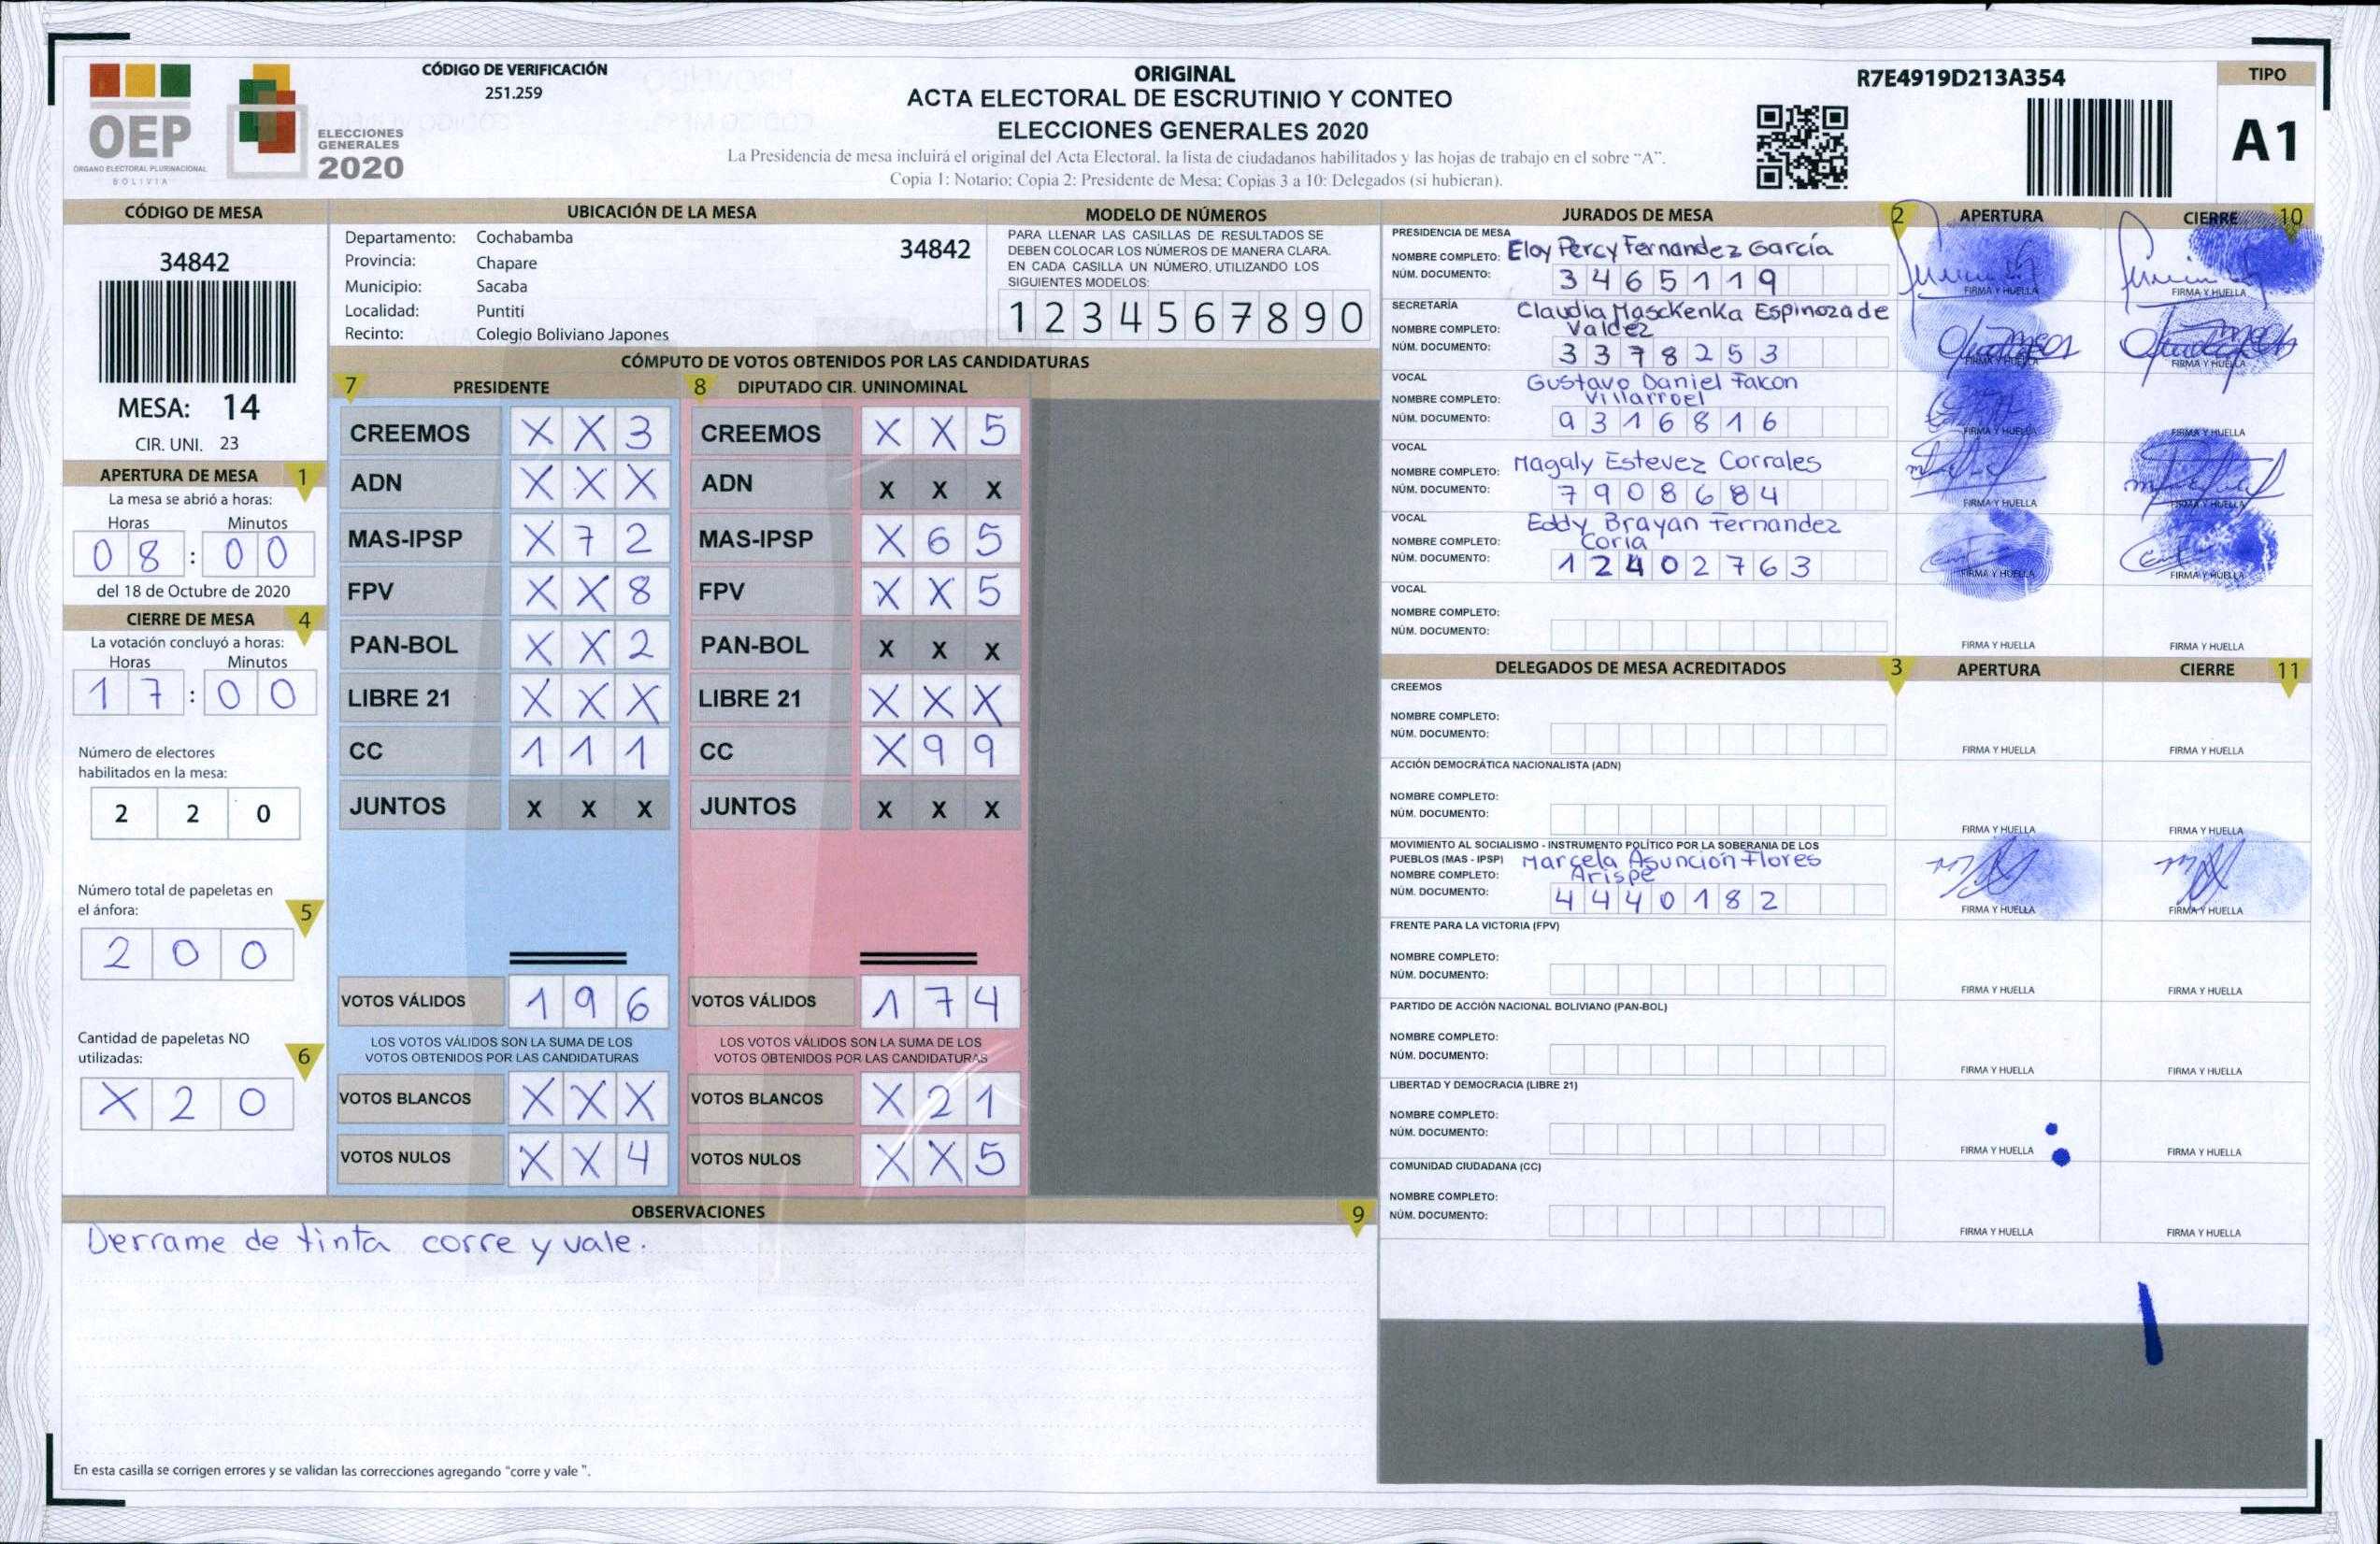 CÓDIGO DE VERIFICACIÓN
251.259
OEP
ÓRGANO ELECTORAL PLURINACIONAL
BOLIVIA
ELECCIONES
GENERALES
2020
ORIGINAL
ACTA ELECTORAL DE ESCRUTINIO Y CONTEO
ELECCIONES GENERALES 2020
La Presidencia de mesa incluirá el original del Acta Electoral, la lista de ciudadanos habilitados y las hojas de trabajo en el sobre "A".
Copia 1: Notario; Copia 2: Presidente de Mesa; Copias 3 a 10: Delegados (si hubieran).
R7E4919D213A354
TIPO
A1
CÓDIGO DE MESA
34842
MESA: 14
CIR. UNI. 23
APERTURA DE MESA 1
La mesa se abrió a horas:
Horas Minutos
08 : 00
del 18 de Octubre de 2020
CIERRE DE MESA 4
La votación concluyó a horas:
Horas Minutos
17 : 00
Número de electores
habilitados en la mesa:
2 2 0
Número total de papeletas en
el ánfora: 5
2 0 0
Cantidad de papeletas NO
utilizadas: 6
X 2 0
UBICACIÓN DE LA MESA
Departamento: Cochabamba
34842
Provincia: Chapare
Municipio: Sacaba
Localidad: Puntiti
Recinto: Colegio Boliviano Japones
MODELO DE NÚMEROS
PARA LLENAR LAS CASILLAS DE RESULTADOS SE
DEBEN COLOCAR LOS NÚMEROS DE MANERA CLARA.
EN CADA CASILLA UN NÚMERO, UTILIZANDO LOS
SIGUIENTES MODELOS:
1 2 3 4 5 6 7 8 9 0
CÓMPUTO DE VOTOS OBTENIDOS POR LAS CANDIDATURAS
7 PRESIDENTE 8 DIPUTADO CIR. UNINOMINAL
CREEMOS X X 3 CREEMOS X X 5
ADN X X X ADN X X X
MAS-IPSP X 7 2 MAS-IPSP X 6 5
FPV X X 8 FPV X X 5
PAN-BOL X X 2 PAN-BOL X X X
LIBRE 21 X X X LIBRE 21 X X X
CC 1 1 1 CC X 9 9
JUNTOS X X X JUNTOS X X X
VOTOS VÁLIDOS 1 9 6 VOTOS VÁLIDOS 1 7 4
LOS VOTOS VÁLIDOS SON LA SUMA DE LOS LOS VOTOS VÁLIDOS SON LA SUMA DE LOS
VOTOS OBTENIDOS POR LAS CANDIDATURAS VOTOS OBTENIDOS POR LAS CANDIDATURAS
VOTOS BLANCOS X X X VOTOS BLANCOS X 2 1
VOTOS NULOS X X 4 VOTOS NULOS X X 5
OBSERVACIONES 9
Derrame de tinta corre y vale.
En esta casilla se corrigen errores y se validan las correcciones agregando "corre y vale".
JURADOS DE MESA 2 APERTURA CIERRE 10
PRESIDENCIA DE MESA
NOMBRE COMPLETO: Eloy Percy Fernandez García
NÚM. DOCUMENTO: 3465119
FIRMA Y HUELLA FIRMA Y HUELLA
SECRETARÍA
NOMBRE COMPLETO: Claudia Masckenka Espinoza de
Valdez
NÚM. DOCUMENTO: 3378253
FIRMA Y HUELLA FIRMA Y HUELLA
VOCAL
NOMBRE COMPLETO: Gustavo Daniel Falcon
Villarroel
NÚM. DOCUMENTO: 9316816
FIRMA Y HUELLA FIRMA Y HUELLA
VOCAL
NOMBRE COMPLETO: Magaly Estevez Corrales
NÚM. DOCUMENTO: 7908684
FIRMA Y HUELLA FIRMA Y HUELLA
VOCAL
NOMBRE COMPLETO: Eddy Brayan Fernandez
Coria
NÚM. DOCUMENTO: 12402763
FIRMA Y HUELLA FIRMA Y HUELLA
VOCAL
NOMBRE COMPLETO:
NÚM. DOCUMENTO:
FIRMA Y HUELLA FIRMA Y HUELLA
DELEGADOS DE MESA ACREDITADOS 3 APERTURA CIERRE 11
CREEMOS
NOMBRE COMPLETO:
NÚM. DOCUMENTO:
FIRMA Y HUELLA FIRMA Y HUELLA
ACCIÓN DEMOCRÁTICA NACIONALISTA (ADN)
NOMBRE COMPLETO:
NÚM. DOCUMENTO:
FIRMA Y HUELLA FIRMA Y HUELLA
MOVIMIENTO AL SOCIALISMO - INSTRUMENTO POLÍTICO POR LA SOBERANIA DE LOS
PUEBLOS (MAS - IPSP) Marcela Asunción Flores
NOMBRE COMPLETO: Arispe
NÚM. DOCUMENTO: 4440182
FIRMA Y HUELLA FIRMA Y HUELLA
FRENTE PARA LA VICTORIA (FPV)
NOMBRE COMPLETO:
NÚM. DOCUMENTO:
FIRMA Y HUELLA FIRMA Y HUELLA
PARTIDO DE ACCIÓN NACIONAL BOLIVIANO (PAN-BOL)
NOMBRE COMPLETO:
NÚM. DOCUMENTO:
FIRMA Y HUELLA FIRMA Y HUELLA
LIBERTAD Y DEMOCRACIA (LIBRE 21)
NOMBRE COMPLETO:
NÚM. DOCUMENTO:
FIRMA Y HUELLA FIRMA Y HUELLA
COMUNIDAD CIUDADANA (CC)
NOMBRE COMPLETO:
NÚM. DOCUMENTO:
FIRMA Y HUELLA FIRMA Y HUELLA